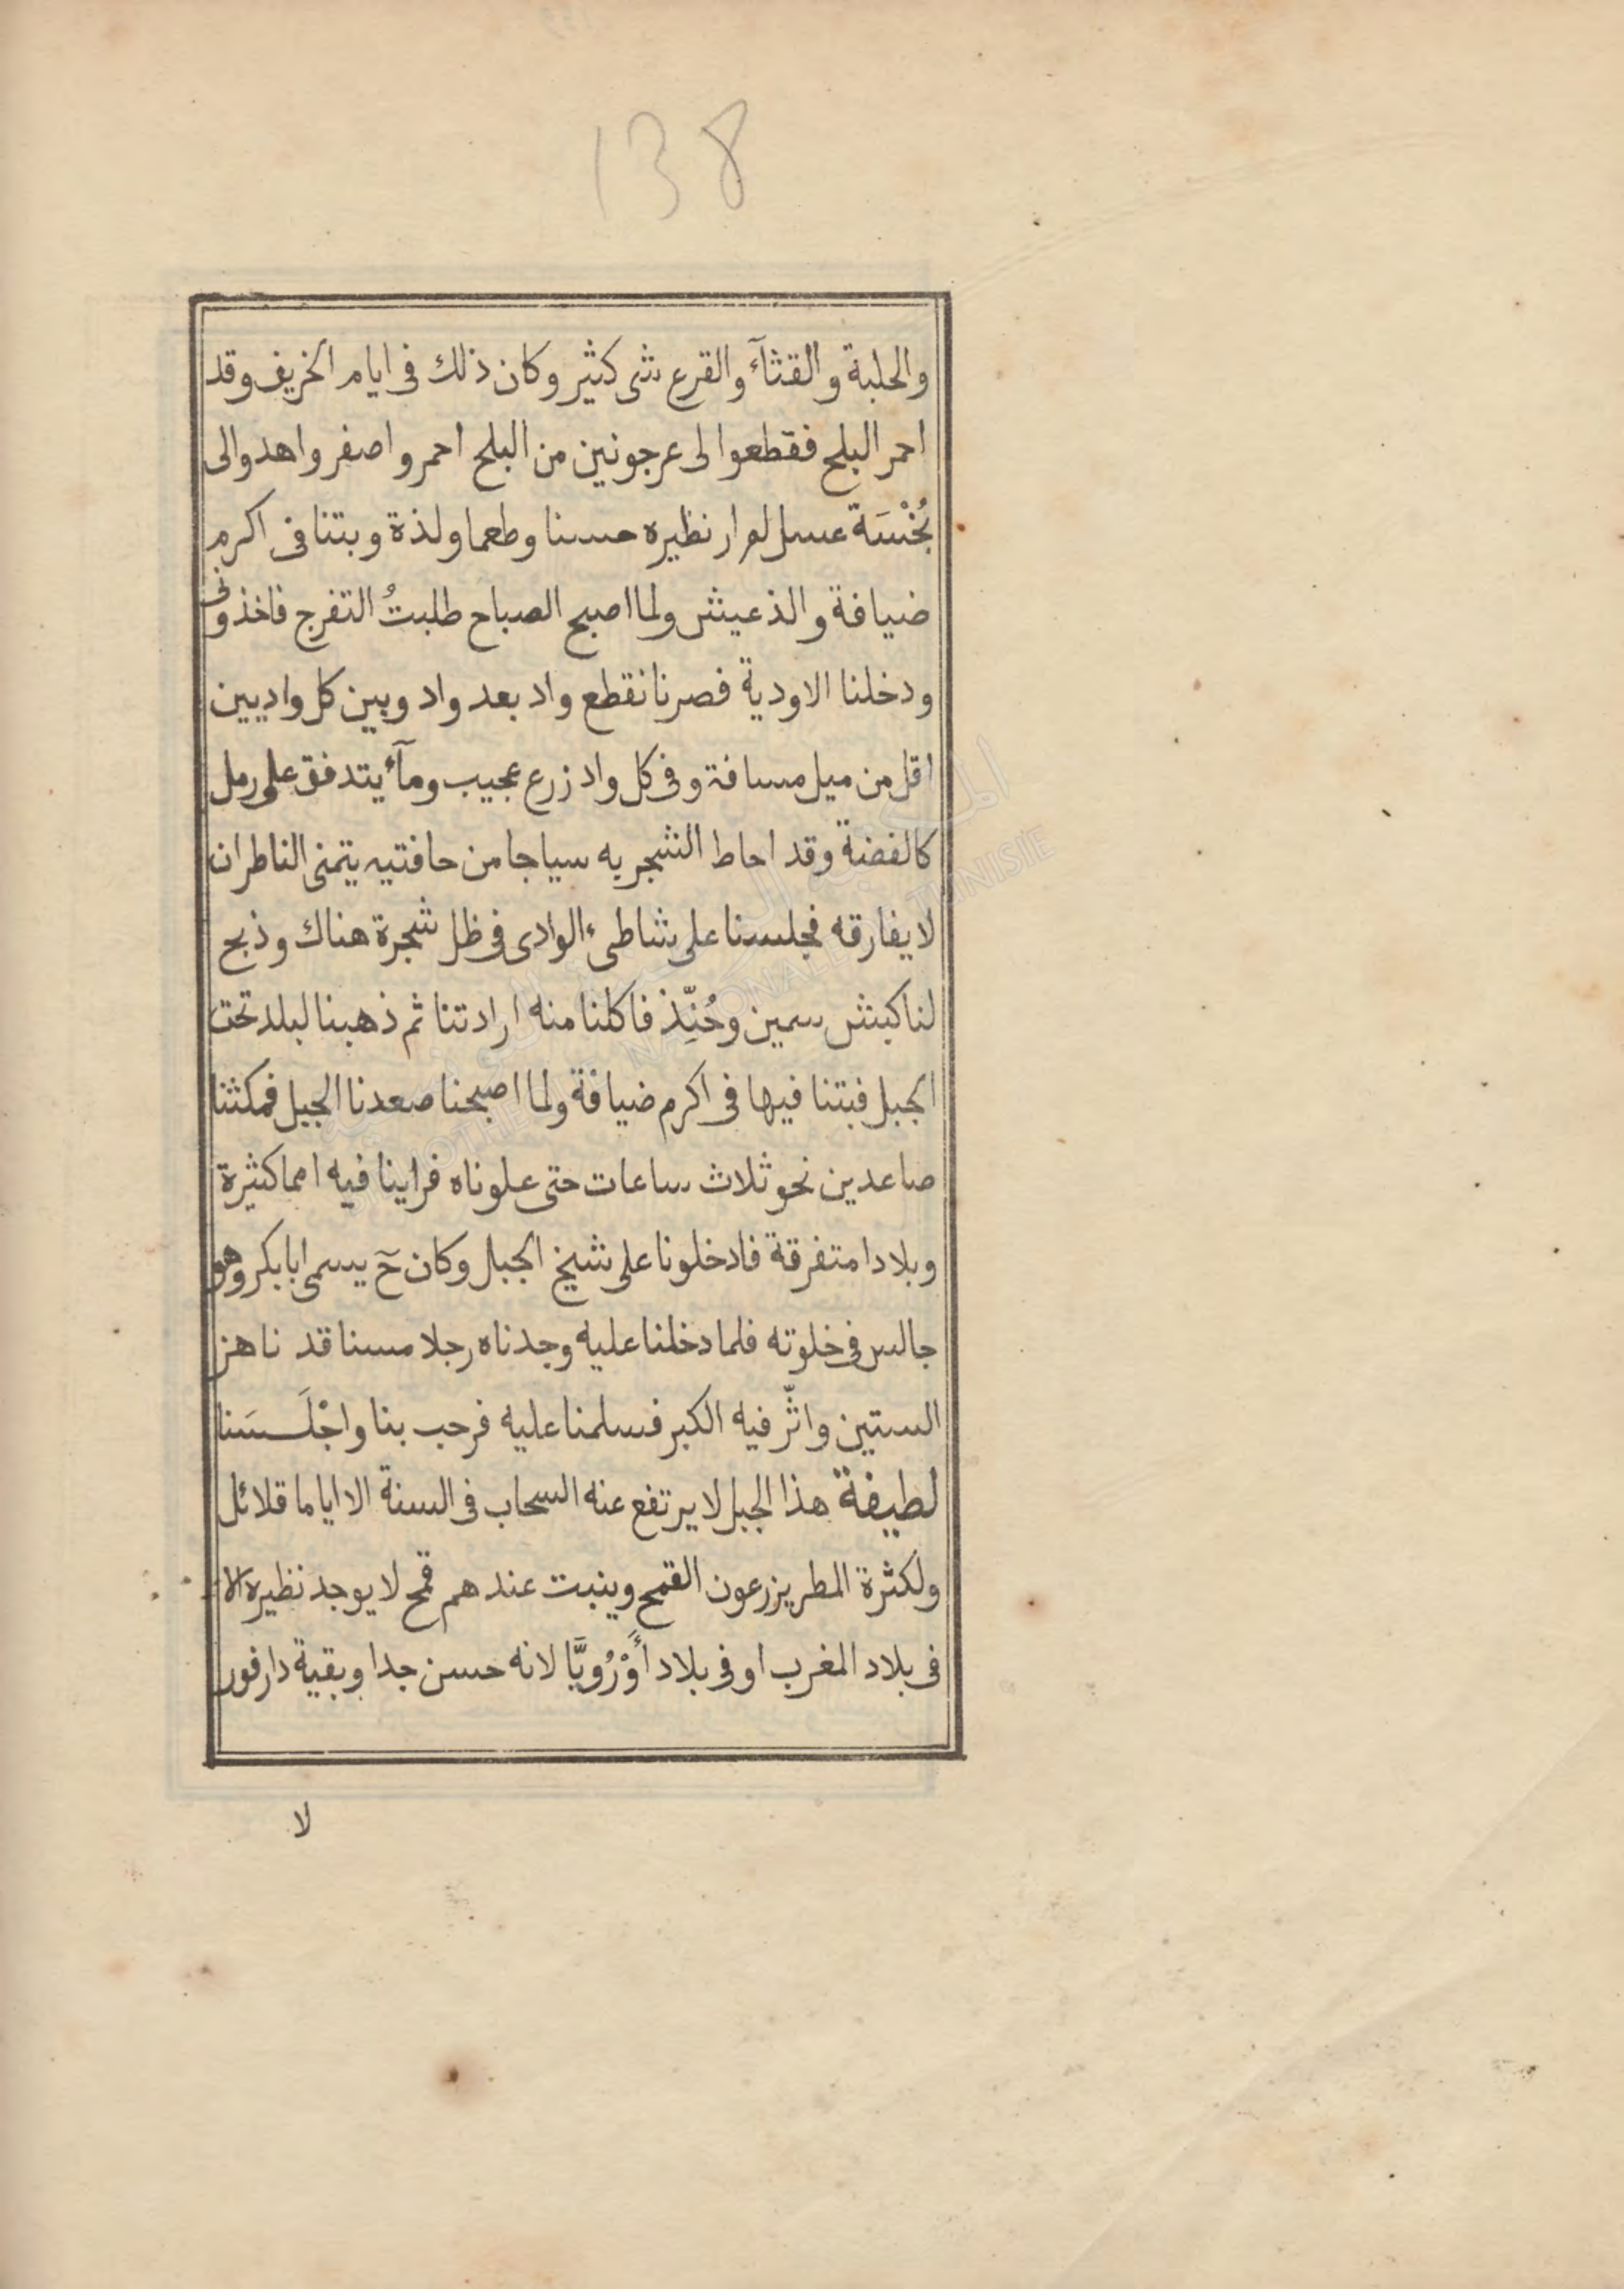 138
والحلبة والقثآء والقرع شى كثير وكان ذلك فى ايام الخريف وقد
احمر البلح فقطعوا لى عرجونين من البلح احمر واصفر واهدوالى
بُخْسَة عسل لم ار نظيره حسنا وطعما ولذة وبتنا فى اكرم
ضيافة والذ عيش ولما اصبح الصباح طلبتُ التفرج فاخذونى
ودخلنا الاودية فصرنا نقطع واد بعد واد وبين كل واديين
اقل من ميل مسافة وفى كل واد زرع عجيب ومآء يتدفق على رمل
كالفضة وقد احاط الشجر به سياجا من حافتيه يتمنى الناطر ان
لا يفارقه فجلسنا على شاطىء الوادى فى ظل شجرة هناك وذبح
لنا كبش سمين وحُنِّذ فاكلنا منه ارادتنا ثم ذهبنا لبلد تحت
الجبل فبتنا فيها فى اكرم ضيافة ولما اصبحنا صعدنا الجبل فمكثنا
صاعدين نحو ثلاث ساعات حتى علوناه فراينا فيه امما كثيرة
وبلادا متفرقة فادخلونا على شيخ الجبل وكان حٓ يسمى ابا بكر وهو
جالس فى خلوته فلما دخلنا عليه وجدناه رجلا مسنا قد ناهز
الستين واثّر فيه الكبر فسلمنا عليه فرحب بنا واجْلَسَنا
لطيفة هذا الجبل لا يرتفع عنه السحاب فى السنة الا اياما قلائل
ولكثرة المطر يزرعون القمح وينبت عندهم قمح لا يوجد نظيره الا
فى بلاد المغرب او فى بلاد أَوْرُوپَّا لانه حسن جدا وبقية دارفور
لا